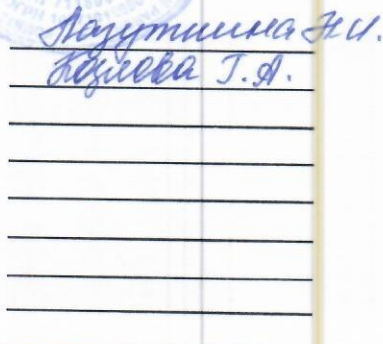 Лазуткина Н.И.
Козлова Т.А.